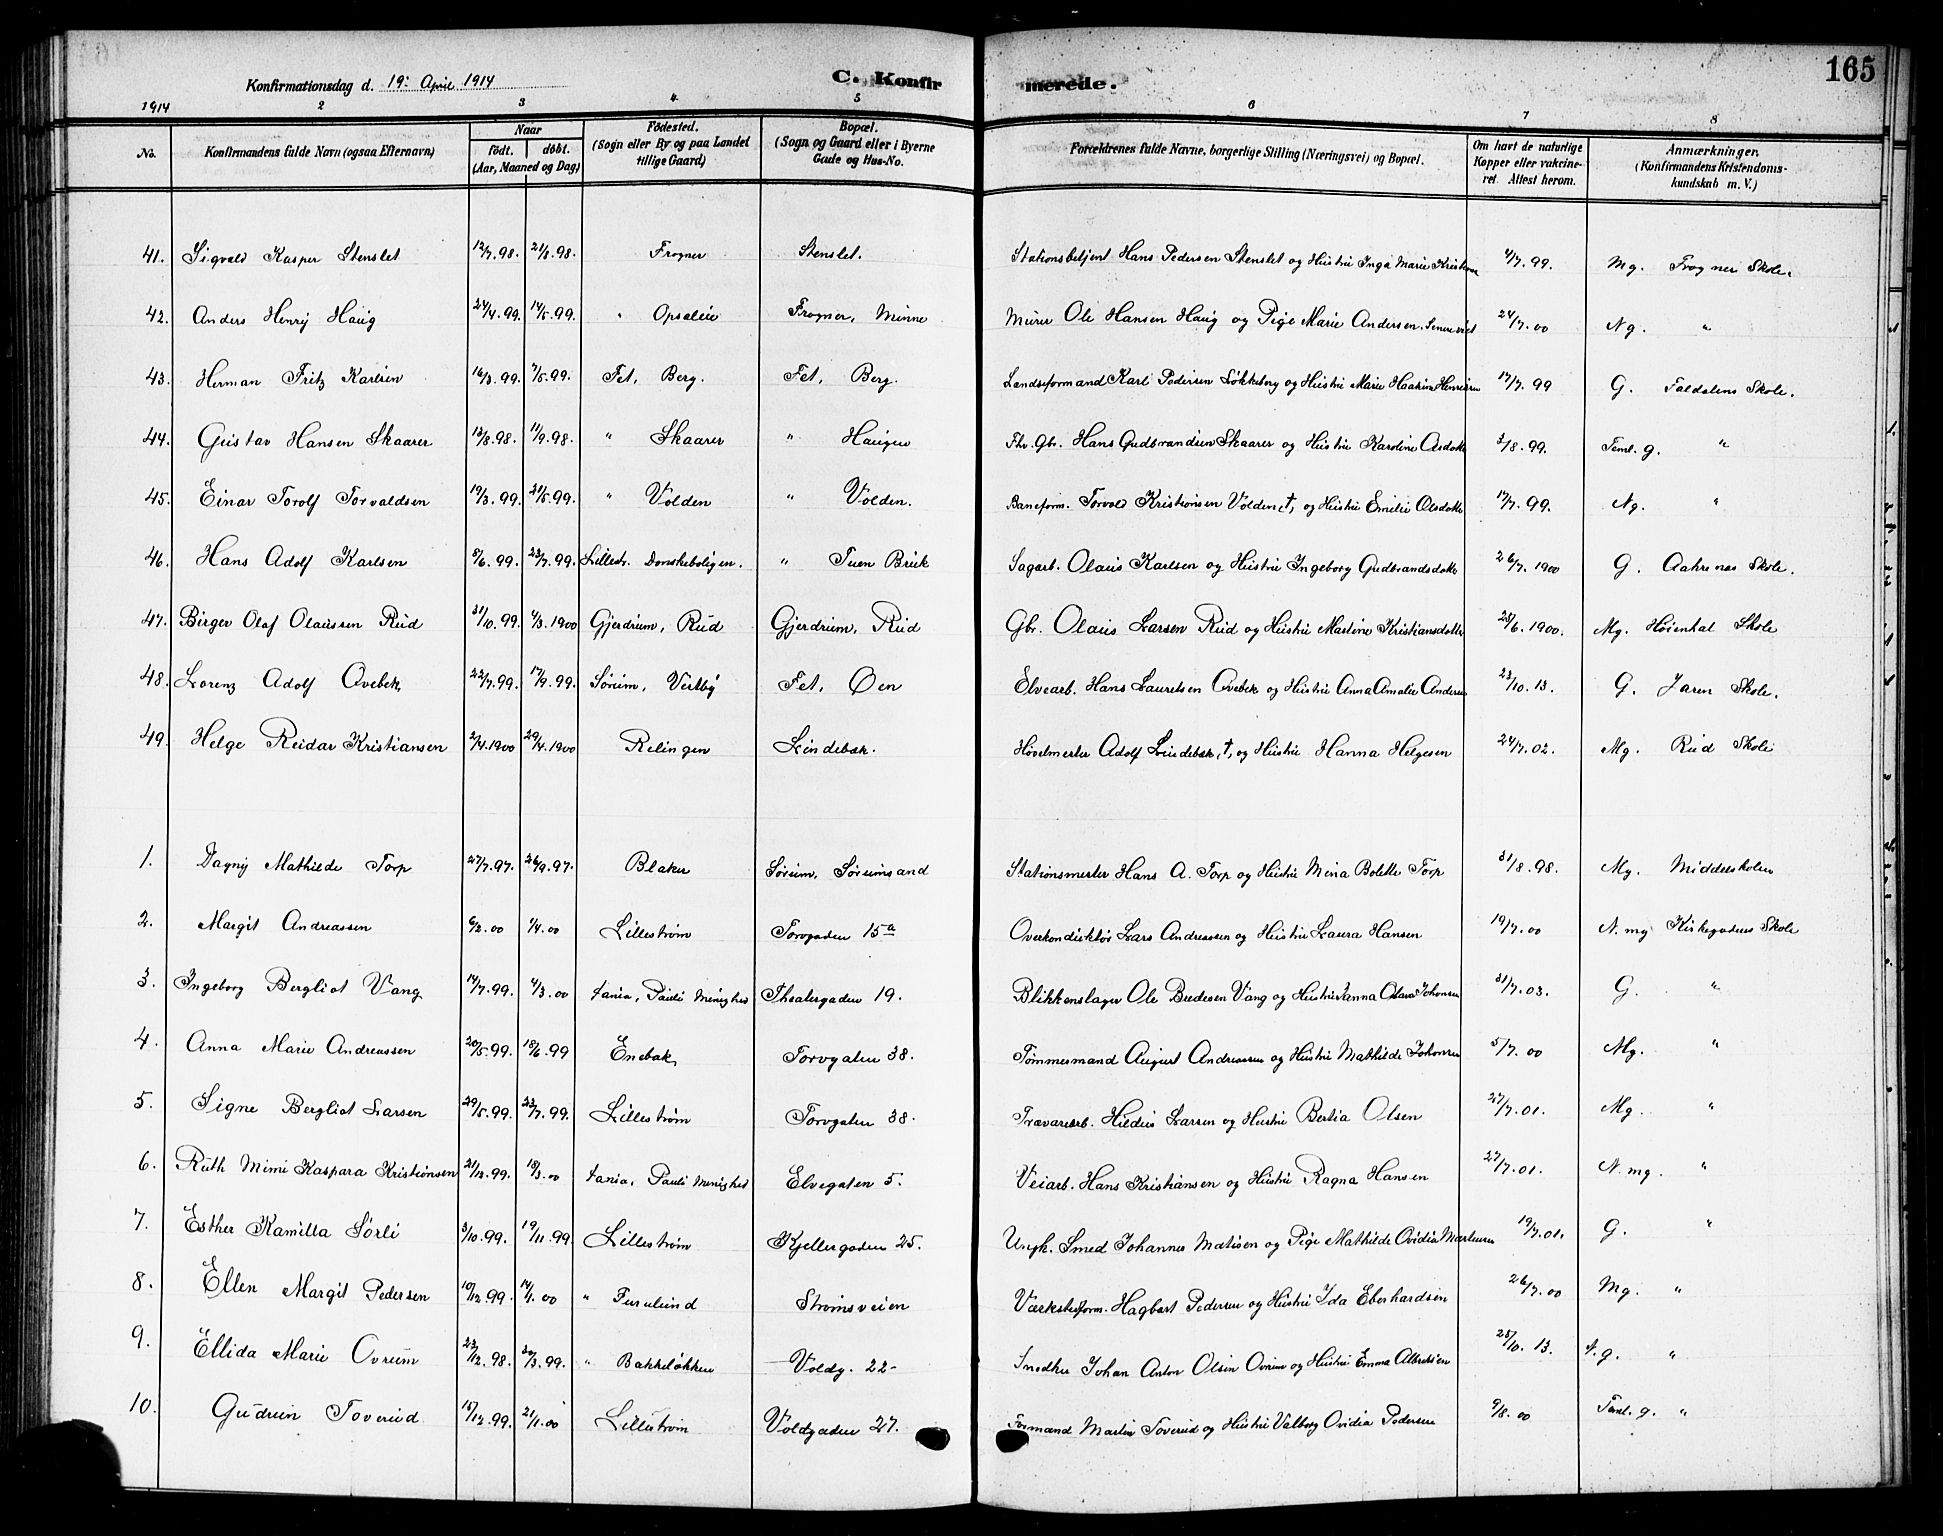 165
Konfirmationsdag d. 19: April 1914
C. Konfirmerede.
1914 2 3 4 5 6 7 8
No. Konfirmandens fulde Navn (ogsaa Efternavn) Naar født. døbt. (Aar, Maaned og Dag) Fødested. (Sogn eller By og paa Landet tillige Gaard) Bopæl. (Sogn og Gaard eller i Byerne Gade og Hus-No. Forældrenes fulde Navne, borgerlige Stilling (Næringsvei) og Bopæl. Om havt de naturlige Kopper eller vakcineret. Attest herom. Anmærkninger. (Konfirmandens Kristendomskundskab m. V.)
41. Sigvald Kasper Stenslet 12/7.98. 21/8.98. Frogner Stenslet. Stationsbetjent Hans Pedersen Stenslet og Hustru Inga Marie 4/7.99. Mg. Frogner Skole.
42. Anders Henry Haug 24/4.99. 14/5.99. " Opsaleie Frogner, Minne Murer Ole Hansen Haug og Pige Marie Andersen. 24/7.00 Ng. "
43. Herman Fritz Karlsen 16/3.99. 7/5.99. Fet, Berg. Fet, Berg. Landseformand Karl Pedersen Løkkeberg og Hustru Marie 17/7.99 G. Faldalens Skole.
44. Gustav Hansen Skaarer 13/8.98. 11/9.98. " Skaarer " Haugen Fhv. Gbr. Hans Gudbrandsen Skaarer og Hustru Karoline Olsdatter 3/8.99. Teml. g. "
45. Einar Torolf Torvaldsen 19/3.99. 21/5.99. " Volden " Volden. Baneform. Torvald Kristiansen Volden, †, og Hustru Emilie Olsdatter 17/7.99. Ng. "
46. Hans Adolf Karlsen 5/6.99. 23/7.99. Lillestr. Donskeboligen. " Tuen Bruk Sagarb. Olaus Karlsen og Hustru Ingeborg Gudbrandsdatter 26/7.1900 G. Aahrenas Skole.
47. Birger Olaf Olaussen Rud 31/10.99. 4/3.1900 Gjerdrum, Rud Gjerdrum, Rud Gbr. Olaus Larsen Rud og Hustru Mastine Kristiansdatter 25/6.1900. Mg. Høienhal Skole
48. Lorenz Adolf Ovebek 22/7.99. 17/9.99. Sørum, Vestby Fet, Øen Elvearb. Hans Lauretsen Ovebek og Hustru Anna Amalie Andersen 23/10.13. G. Jaren Skole.
49. Helge Reidar Kristiansen 2/4.1900 29/4.1900 Relingen Lindebæk. Høvelmester Adolf Lindebæk, †, og Hustru Hanna Helgesen 24/7.02. Mg. Rud Skole
1. Dagny Mathilde Torp 27/7.97. 26/9.97. Blaker Sørum, Sørumsand Stationsmester Hans A. Torp og Hustru Mina Bolette Torp 31/8.98. Mg. Middelskolen
2. Margit Andreassen 6/2.00 1/4.00 Lillestrøm Torvgaden 15a Overkonduktør Lars Andreassen og Hustru Laura Hansen 19/7.00 N.mg Kirkegadens Skole
3. Ingeborg Bergliot Vang 14/7.99. 4/3.00 Kania, Pauli Menighed Theatergaden 19. Blikkenslager Ole Bredesen Vang og Hustru Janna Olava Johansen 31/7.03. G. "
4. Anna Marie Andreassen 20/5.99. 18/6.99 Enebak Torvgaten 38. Tømmermand August Andreassen og Hustru Mathilde Johansen 5/7.00 Mg. "
5. Signe Bergliot Larsen 29/5.99. 23/7.99. Lillestrøm Torvgaten 38. Trævarearb. Hildus Larsen og Hustru Bertia Olsen 27/7.01. Mg. "
6. Ruth Mimi Kaspara Kristiansen 21/12.99. 18/3.00 Kania, Pauli Menighed Elvegaten 5. Veiarb. Hans Kristiansen og Hustru Ragna Hansen 27/7.01. N.mg. "
7. Esther Kamilla Sørli 3/10.99. 19/11.99. Lillestrøm Kjellergaden 25. Ungk. Smed Johannes Matisen og Pige Mathilde Ovidia 19/7.01. G. "
8. Ellen Margit Pedersen 10/12.99. 14/1.00 " Furulund Strømsveien Værkstedsform. Hagbart Pedersen og Hustru Ida Eberhardsen 26/7.00 Mg. "
9. Ellida Marie Ovrum 23/12.98. 30/3.99. " Bakkeløkken Voldg. 22- Snedker Johan Anton Olsen Ovrum og Hustru Emma Albretsen 25/10.13. N.g. "
10. Gudrun Toverud 15/12.99. 21/1.00 Lillestrøm Voldgaden 27. Formand Martin Toverud og Hustru Valborg Ovidia Pedersen 9/8.00 Teml. g. "